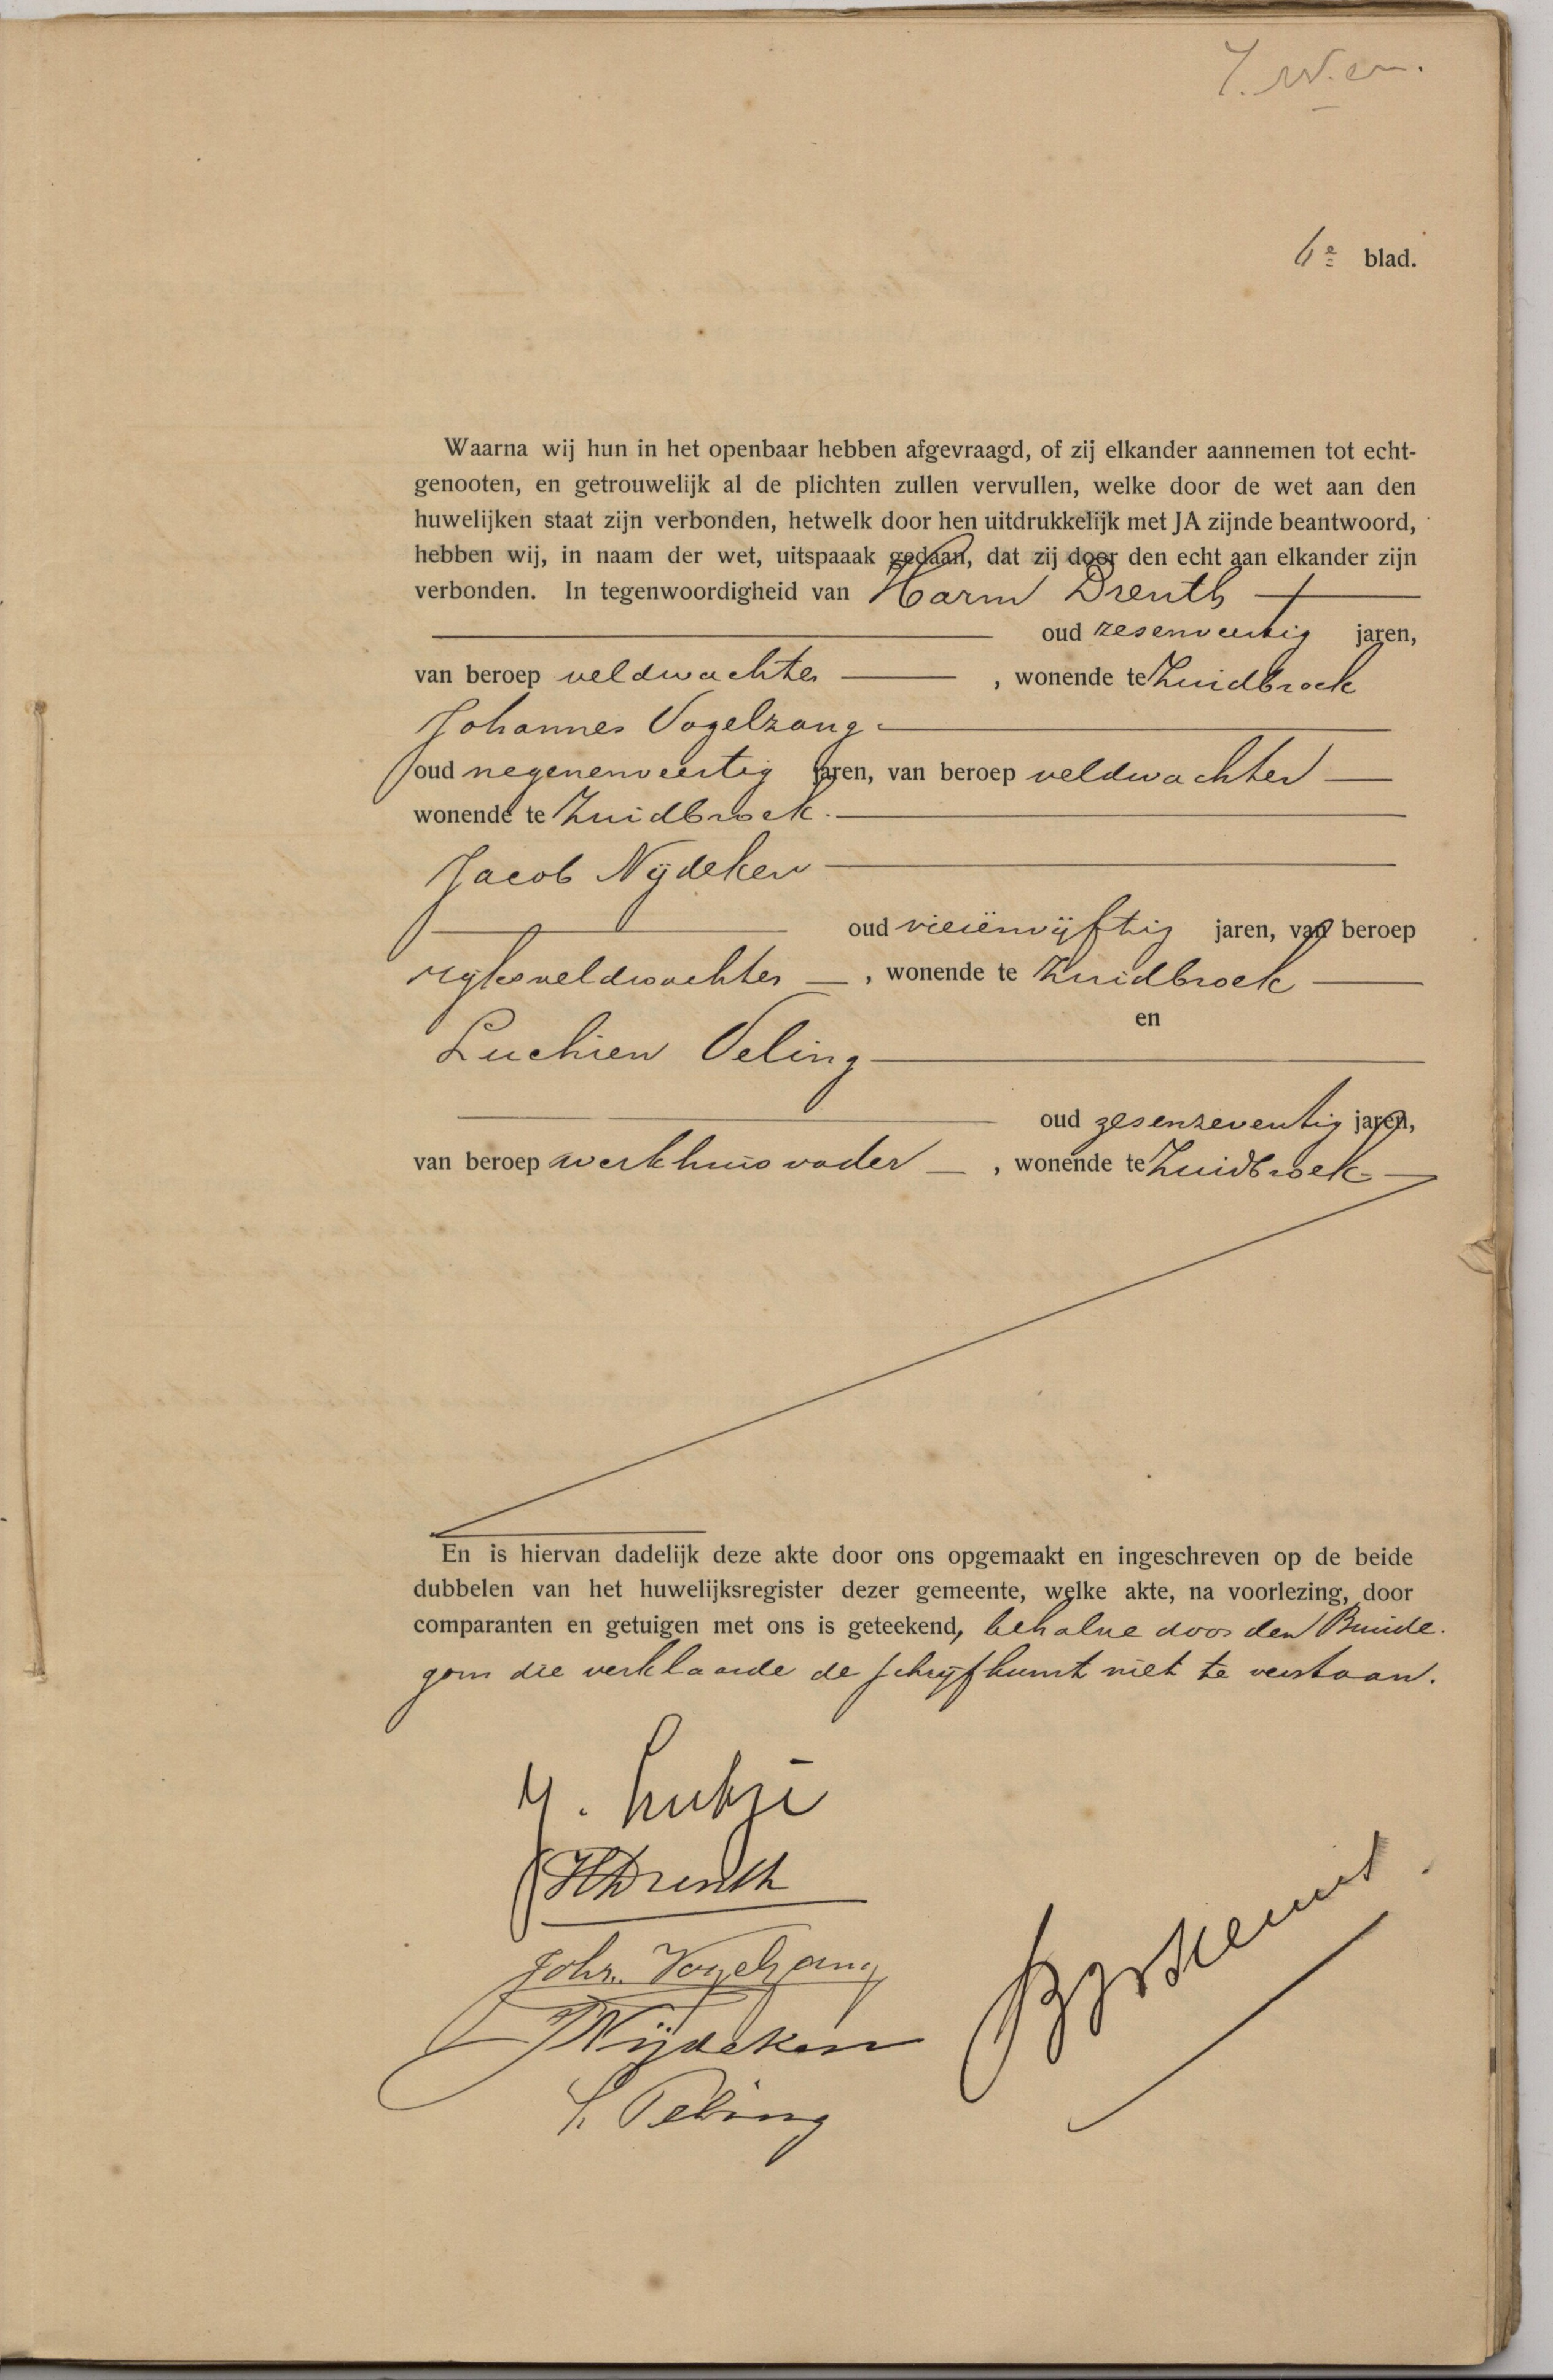 6e blad.
Waarna wij hun in het openbaar hebben afgevraagd, of zij elkander aannemen tot echt-
genooten, en getrouwelijk al de plichten zullen vervullen, welke door de wet aan den
huwelijken staat zijn verbonden, hetwelk door hen uitdrukkelijk met JA zijnde beantwoord,
hebben wij, in naam der wet, uitspaaak gedaan, dat zij door den echt aan elkander zijn
verbonden. In tegenwoordigheid van Harm Drenth
oud zesenveertig jaren,
van beroep veldwachter, wonende te Zuidbroek
Johannes Vogelzang
oud negenenveertig jaren, van beroep veldwachter
wonende te Zuidbroek.
Jacob Nijdeken
oud vierënvijftig jaren, van beroep
rijksveldwachter, wonende te Zuidbroek
en
Luchien Veling
oud zesenzeventig jaren,
van beroep werkhuisvader, wonende te Zuidbroek
En is hiervan dadelijk deze akte door ons opgemaakt en ingeschreven op de beide
dubbelen van het huwelijksregister dezer gemeente, welke akte, na voorlezing, door
comparanten en getuigen met ons is geteekend, behalve door den Bruide-
gom die verklaarde de schrijfkunst niet te verstaan.
HDrenth
Johs. Vogelzang
JNijdeken
L. Veling